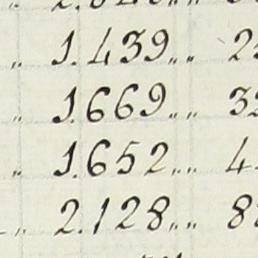 „ 1.439 „ „
„ 1.669 „ „ 32
„ 1.652 „ „ 4
„ 2.128 „ „ 8